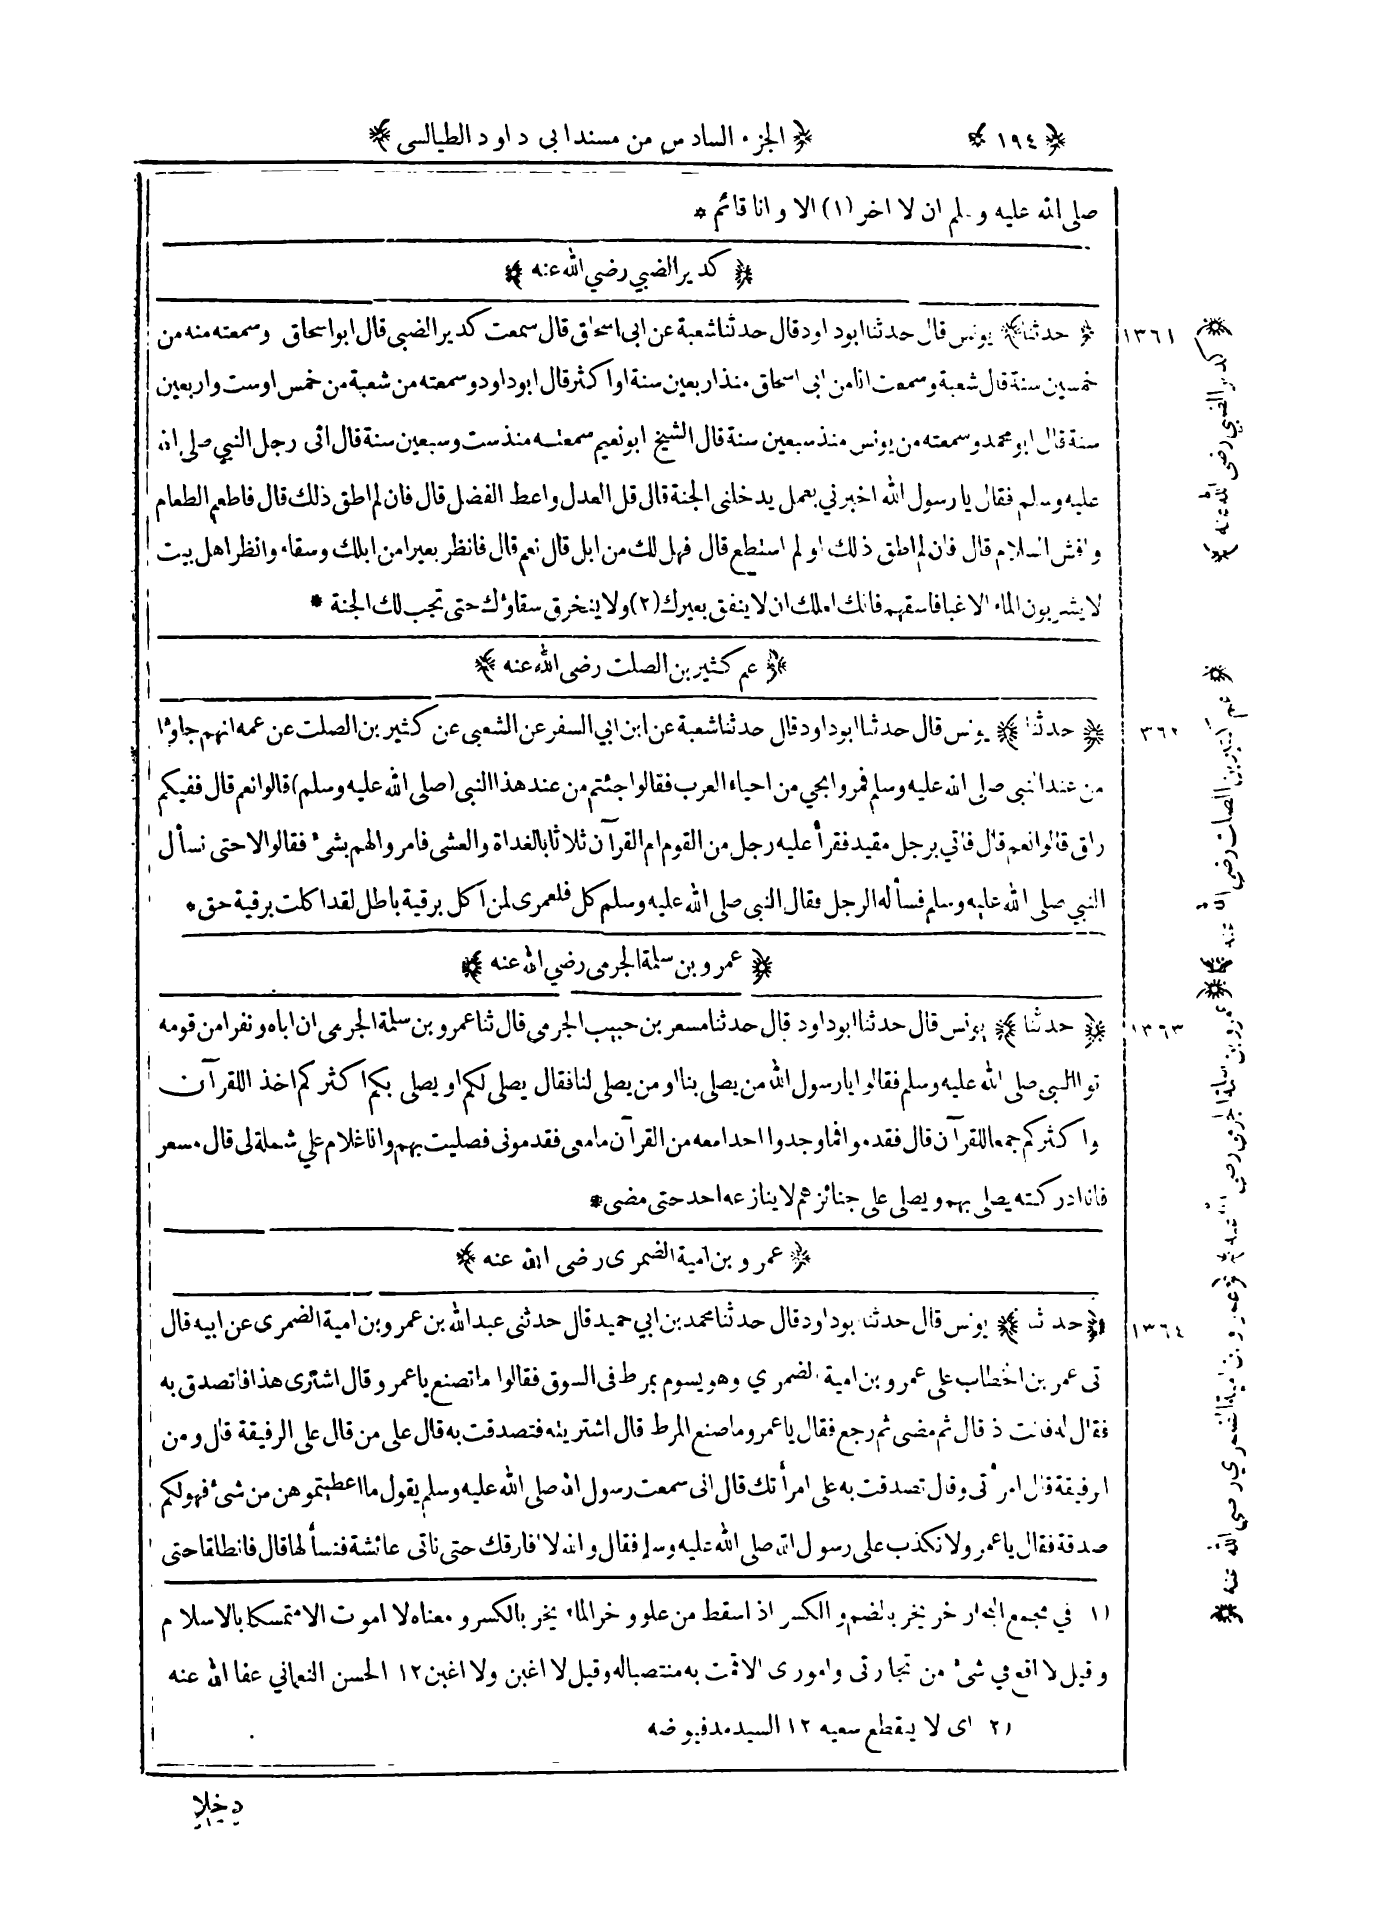 ﴿ ١٩٤ ﴾ ﴿ الجزء السادس من مسند ابى داود الطيالسى ﴾
صلى الله عليه وسلم ان لا اخر (١) الا وانا قائم *
﴿ كدير الضبي رضي الله عنه ﴾
١٣٦١ ﴿ حدثنا ﴾ يونس قال حدثنا ابو داود قال حدثنا شعبة عن ابى اسحاق قال سمعت كدير الضبى قال ابو اسحاق وسمعته منه من
خمسين سنة قال شعبة وسمعت انا من ابى اسحاق منذ اربعين سنة او اكثر قال ابو داود وسمعته من شعبة من خمس اوست واربعين
سنة قال ابو محمد وسمعته من يونس منذ سبعين سنة قال الشيخ ابو نعيم سمعته منذ ست وسبعين سنة قال اتى رجل النبي صلى الله
عليه وسلم فقال يا رسول الله اخبرني بعمل يدخلنى الجنة قال قل العدل واعط الفضل قال فان لم اطق ذلك قال فاطعم الطعام
وافش السلام قال فان لم اطق ذلك او لم استطع قال فهل لك من ابل قال نعم قال فانظر بعيرا من ابلك وسقاء وانظر اهل بيت
لا يشربون الماء الا غبا فاسقهم فانك املك ان لا ينفق بعيرك (٢) ولا ينخرق سقاؤك حتى تجب لك الجنة *
﴿ عم كثير بن الصلت رضى الله عنه ﴾
١٣٦٢ ﴿ حدثنا ﴾ يونس قال حدثنا ابو داود قال حدثنا شعبة عن ابن ابي السفر عن الشعبى عن كثير بن الصلت عن عمه انهم جاوا
من عند النبى صلى الله عليه وسلم فمروا بحي من احياء العرب فقالوا جئتم من عند هذا النبى (صلى الله عليه وسلم) قالوا نعم قال ففيكم
راق قالوا نعم قال فاتي برجل مقيد فقرأ عليه رجل من القوم ام القرآن ثلاثا بالغداة والعشى فامروا لهم بشئ فقالوا لا حتى نسأل
النبي صلى الله عليه وسلم فسأله الرجل فقال النبى صلى الله عليه وسلم كل فلعمرى لمن اكل برقية باطل لقد اكلت برقية حق *
﴿ عمرو بن سلمة الجرمى رضي الله عنه ﴾
١٣٦٣ ﴿ حدثنا ﴾ يونس قال حدثنا ابو داود قال حدثنا مسعر بن حبيب الجرمي قال ثنا عمرو بن سلمة الجرمى ان اباه ونفرا من قومه
توا النبى صلى الله عليه وسلم فقالوا يا رسول الله من يصلى بنا او من يصلى لنا فقال يصلى لكم او يصلى بكم اكثركم اخذ اللقرآن
واكثركم جمعا للقرآن قال فقدموا فما وجدوا احدا معه من القرآن ما معى فقدمونى فصليت بهم وانا غلام علي شملة لى قال مسعر
فانا ادركته يصلى بهم ويصلى على جنائزهم لا ينازعه احد حتى مضى *
﴿ عمرو بن امية الضمرى رضى الله عنه ﴾
١٣٦٤ ﴿ حدثنا ﴾ يونس قال حدثنا ابو داود قال حدثنا محمد بن ابي حميد قال حدثنى عبد الله بن عمرو بن امية الضمرى عن ابيه قال
تى عمر بن الخطاب على عمرو بن امية الضمري وهو يسوم بمرط فى السوق فقالوا ما تصنع يا عمرو قال اشترى هذا فاتصدق به
فقال له فانت ذ قال ثم مضى ثم رجع فقال يا عمرو ما صنع المرط قال اشتريته فتصدقت به قال على من قال على الرفيقة قال ومن
الرفيقة قال امرأتى وقال تصدقت به على امرأتك قال انى سمعت رسول الله صلى الله عليه وسلم يقول ما اعطيتموهن من شئ فهو لكم
صدقة فقال يا عمرو لا تكذب على رسول الله صلى الله عليه وسلم فقال والله لا افارقك حتى ناتى عائشة فنسألها قال فانطلقا حتى
(١ في مجمع البحار خر يخر بالضم والكسر اذا سقط من علو وخر الماء يخر بالكسر ومعناه لا اموت الا متمسكا بالاسلام
وقيل لا اقع في شئ من تجارتى واموري الا قمت به منتصبا له وقيل لا اغبن ولا اغبن ١٢ الحسن النعماني عفا الله عنه
(٢ اى لا ينقطع سعيه ١٢ السيد مد فيوضه
دخلا
﴿ كدير الضبي رضى الله عنه ﴾
﴿ عم كثير بن الصلت رضي الله عنه ﴾
﴿ عمرو بن سلمة الجرمى رضي الله عنه ﴾
﴿ عمرو بن امية الضمري رضي الله عنه ﴾